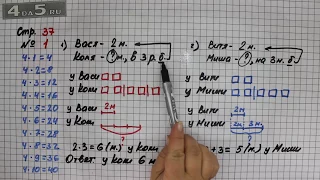 4gos.RU
Стр. 37
№ 1
1) Вася - 2 м.
Коля - ? м, в 3 р. б.
у Васи
у Коли
у Васи
2м
у Коли
2·3=6(м.) у К
Ответ у Коли 6 м
2) Витя - 2 м.
Миша - ?, на 3 м. б.
у Вити
у Миши
у Вити
2м
у Миши
2м. 3м.
+3=5(м.) у Миши
4·1=4
4·2=8
4·3=12
4·4=16
4·5=20
4·6=24
4·7=28
4·8=32
4·9=36
4·10=40